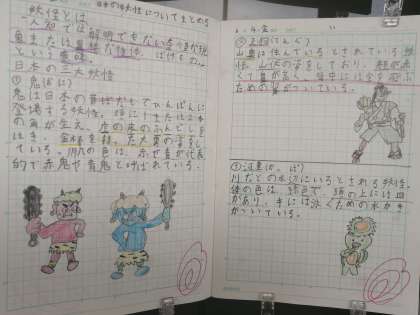 日本の妖怪についてまとめる
妖怪とは
人知では解明できない奇怪な現
象または異様な物体、ばけもの
という意味。
日本の三大妖怪
① 鬼(おに)
鬼は日本の昔話などでひんぱんに
登場する妖怪。頭に1または2本
の角が生え、虎の皮のふんどしを
はき、金棒を持った大男の姿をし
ている。肌の色は、赤や青が代表
的で赤鬼や青鬼と呼ばれている。
② 天狗(てんぐ)
山奥に住んでいるとされている妖
怪。山伏の姿をしており、顔が赤
くて鼻が高く、背中には空を飛ぶ
ための翼がついている。
③ 河童(かっぱ)
川などの水辺にいるとされる妖怪。
体の色は、緑色で、頭の上には皿
があり、手には泳ぐための水かき
がついている。